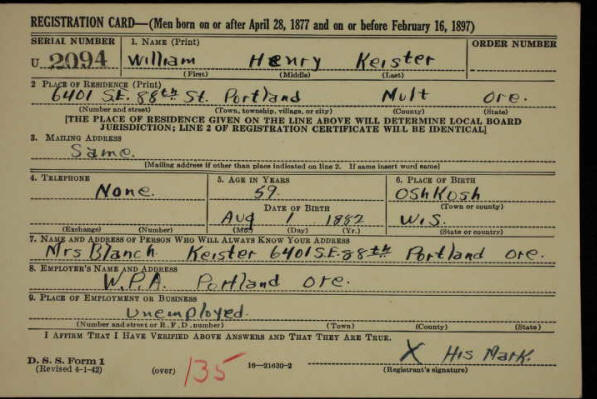 REGISTRATION CARD—(Men born on or after April 28, 1877 and on or before February 16, 1897)
SERIAL NUMBER 1. NAME (Print) ORDER NUMBER
U 2094 William Henry Keister
(First) (Middle) (Last)
2 PLACE OF RESIDENCE (Print)
6401 S.E. 88th St. Portland Mult Ore.
(Number and street) (Town, township, village, or city) (County) (State)
[THE PLACE OF RESIDENCE GIVEN ON THE LINE ABOVE WILL DETERMINE LOCAL BOARD
JURISDICTION; LINE 2 OF REGISTRATION CERTIFICATE WILL BE IDENTICAL]
3. MAILING ADDRESS
Same.
[Mailing address if other than place indicated on line 2. If same insert word same]
4. TELEPHONE 5. AGE IN YEARS 6. PLACE OF BIRTH
None. 59. Oshkosh
DATE OF BIRTH (Town or county)
Aug 1 1882 Wis.
(Exchange) (Number) (Mo.) (Day) (Yr.) (State or country)
7. NAME AND ADDRESS OF PERSON WHO WILL ALWAYS KNOW YOUR ADDRESS
Mrs Blanch Keister 6401 S.E. 88th Portland Ore.
8. EMPLOYER'S NAME AND ADDRESS
W.P.A. Portland Ore.
9. PLACE OF EMPLOYMENT OR BUSINESS
Unemployed.
(Number and street or R. F. D. number) (Town) (County) (State)
I AFFIRM THAT I HAVE VERIFIED ABOVE ANSWERS AND THAT THEY ARE TRUE.
X His Mark
D. S. S. Form 1
(Revised 4-1-42) (over) 135 16—21630-2 (Registrant's signature)